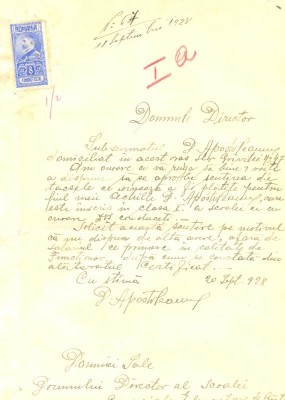 ROMANIA
P: 67
11 Septembrie 1928
I a
1/2
Domnule Director
Subsemnatul D. Apostoleanu
domiciliat in acest oras str Grivitei
Am onoare a vă ruga să bine-voiti
a dispune sa se aprobe scutirea de
taxele ce urmează a fi platite pentru
fiul meu Achille D. Apostoleanu, care
este inscris in clasa I a scoalei ce cu
onoare conduceti.
Solicit această scutire pe motivul
că nu dispun de altă avere, afara de
salariul ce primesc in calitate de
functionar, după cum se constată din
alaturatul Certificat.
Cu stimă 20 Sept. 928
D Apostoleanu
Domniei Sale
Domnului Director al Scoalei